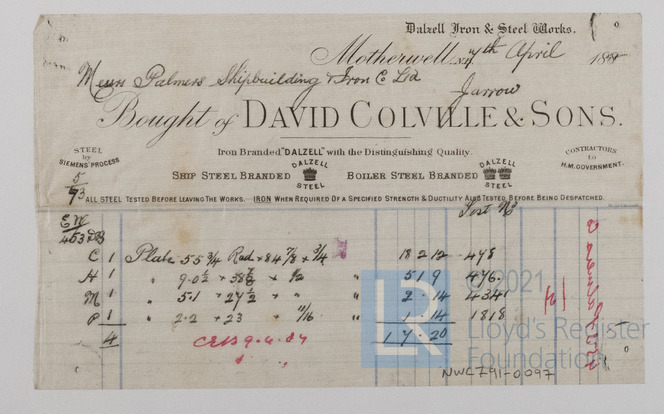 Dalzell Iron & Steel Works.
Motherwell, N.B. 7th April 188
Messrs Palmers Shipbuilding & Iron C Ltd
Jarrow
Bought of DAVID COLVILLE & SONS.
Iron Branded "DALZELL" with the Distinguishing Quality.
STEEL
by
SIEMENS' PROCESS
SHIP STEEL BRANDED DALZELL STEEL BOILER STEEL BRANDED DALZELL STEEL
CONTRACTORS
to
H.M. GOVERNMENT.
5/93
ALL STEEL TESTED BEFORE LEAVING THE WORKS. IRON WHEN REQUIRED OF A SPECIFIED STRENGTH & DUCTILITY ALSO TESTED BEFORE BEING DESPATCHED.
Test No
453
C 1 Plate 55 3/4 Rad × 84 7/8 × 3/4 18 2 12 478
H 1 " 9.0 1/2 × 38 7/8 × 1/2 " 5 1 9 476.
M 1 " 5.1 × 27 1/2 × " " 2 . 14 4341
P 1 " 2.2 × 23 11/16 " 1 14 1818
4 1 7 . 20
9.4.84
© 2021
Lloyd's Register
Foundation
LR
NWC791-0097